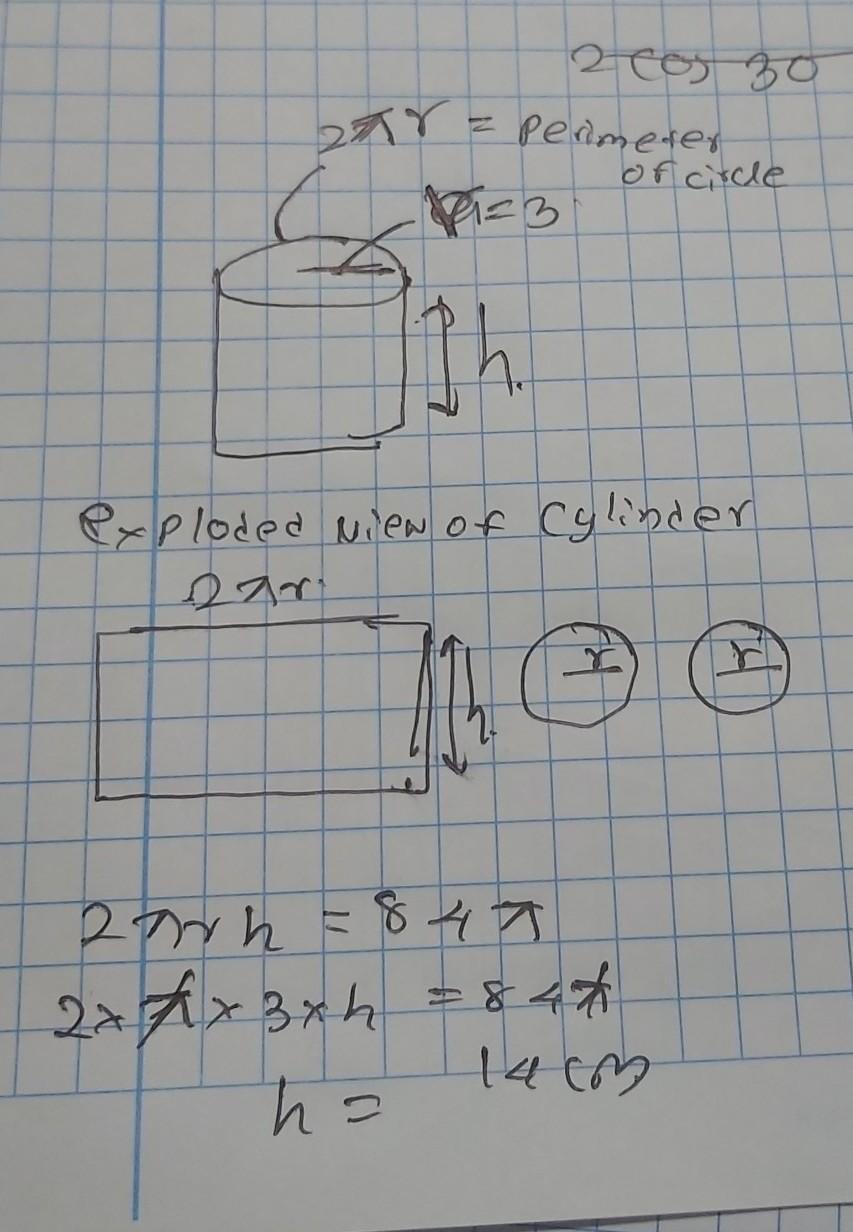 2 cos 30
2πr = perimeter
of circle
r=3
h.
exploded view of cylinder
2πr.
h.
r
r
2πrh = 84π
2×π×3×h = 84π
h = 14 cm